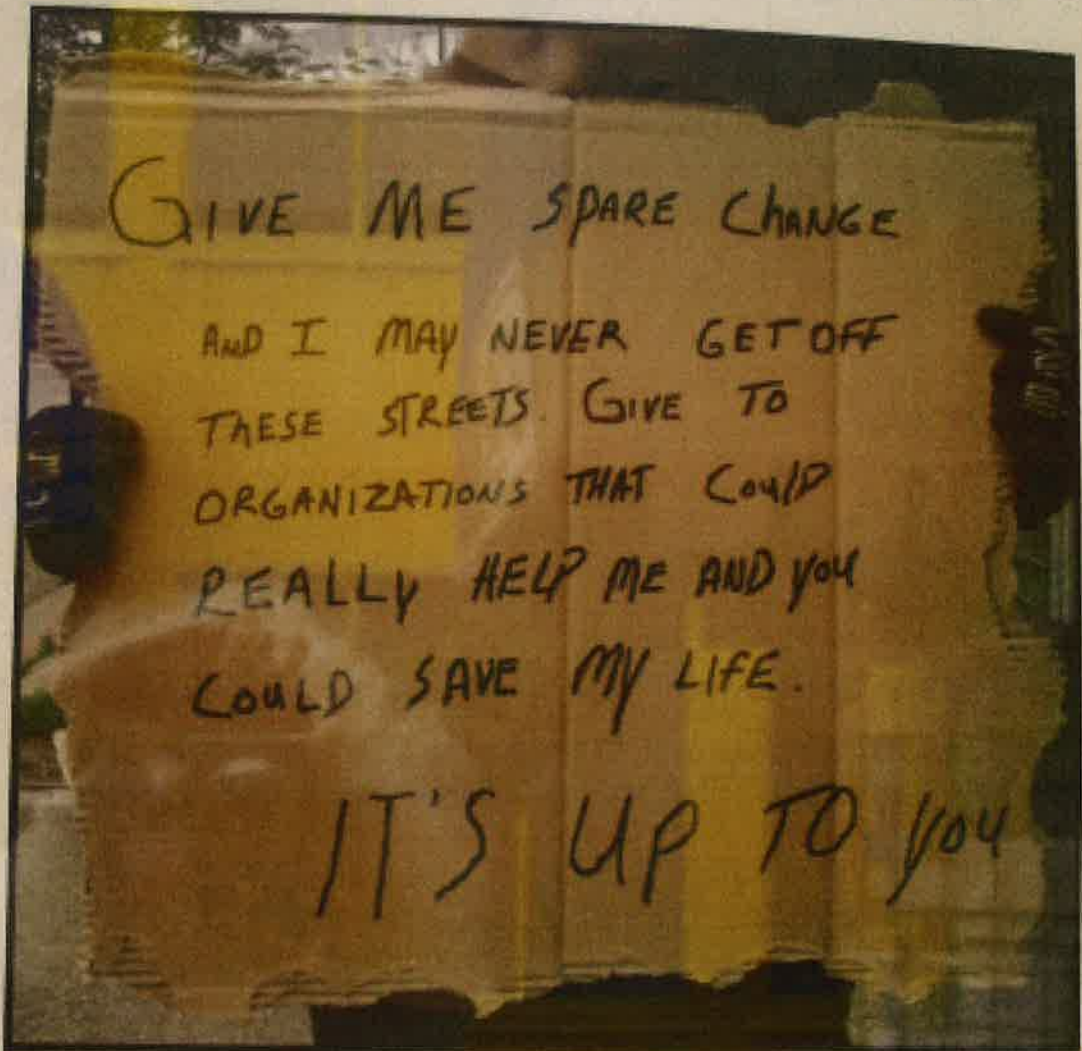 GIVE ME SPARE ChANGE
AND I MAY NEVER GET OFF
ThESE STREETS. GIVE TO
ORGANIZATIONS THAT COULD
REALLY HELP ME AND you
COULD SAVE MY LIFE.
IT'S UP TO you